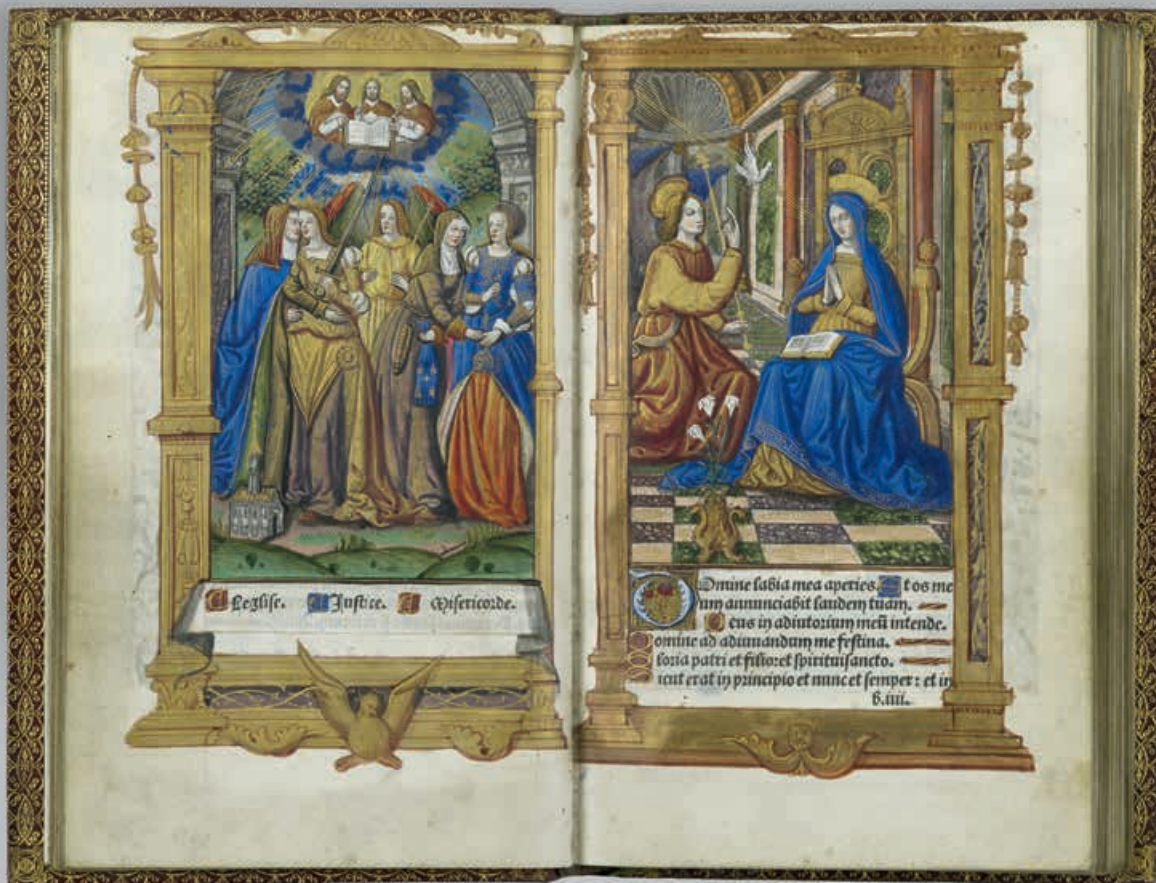 Leglise. Justice. Misericorde.
Domine labia mea aperies. Et os me
um annunciabit laudem tuam.
Deus in adiutorium meū intende.
Domine ad adiuuandum me festina.
Gloria patri et filio: et spirituisancto.
Sicut erat in principio et nunc et semper: et in
b.iiii.